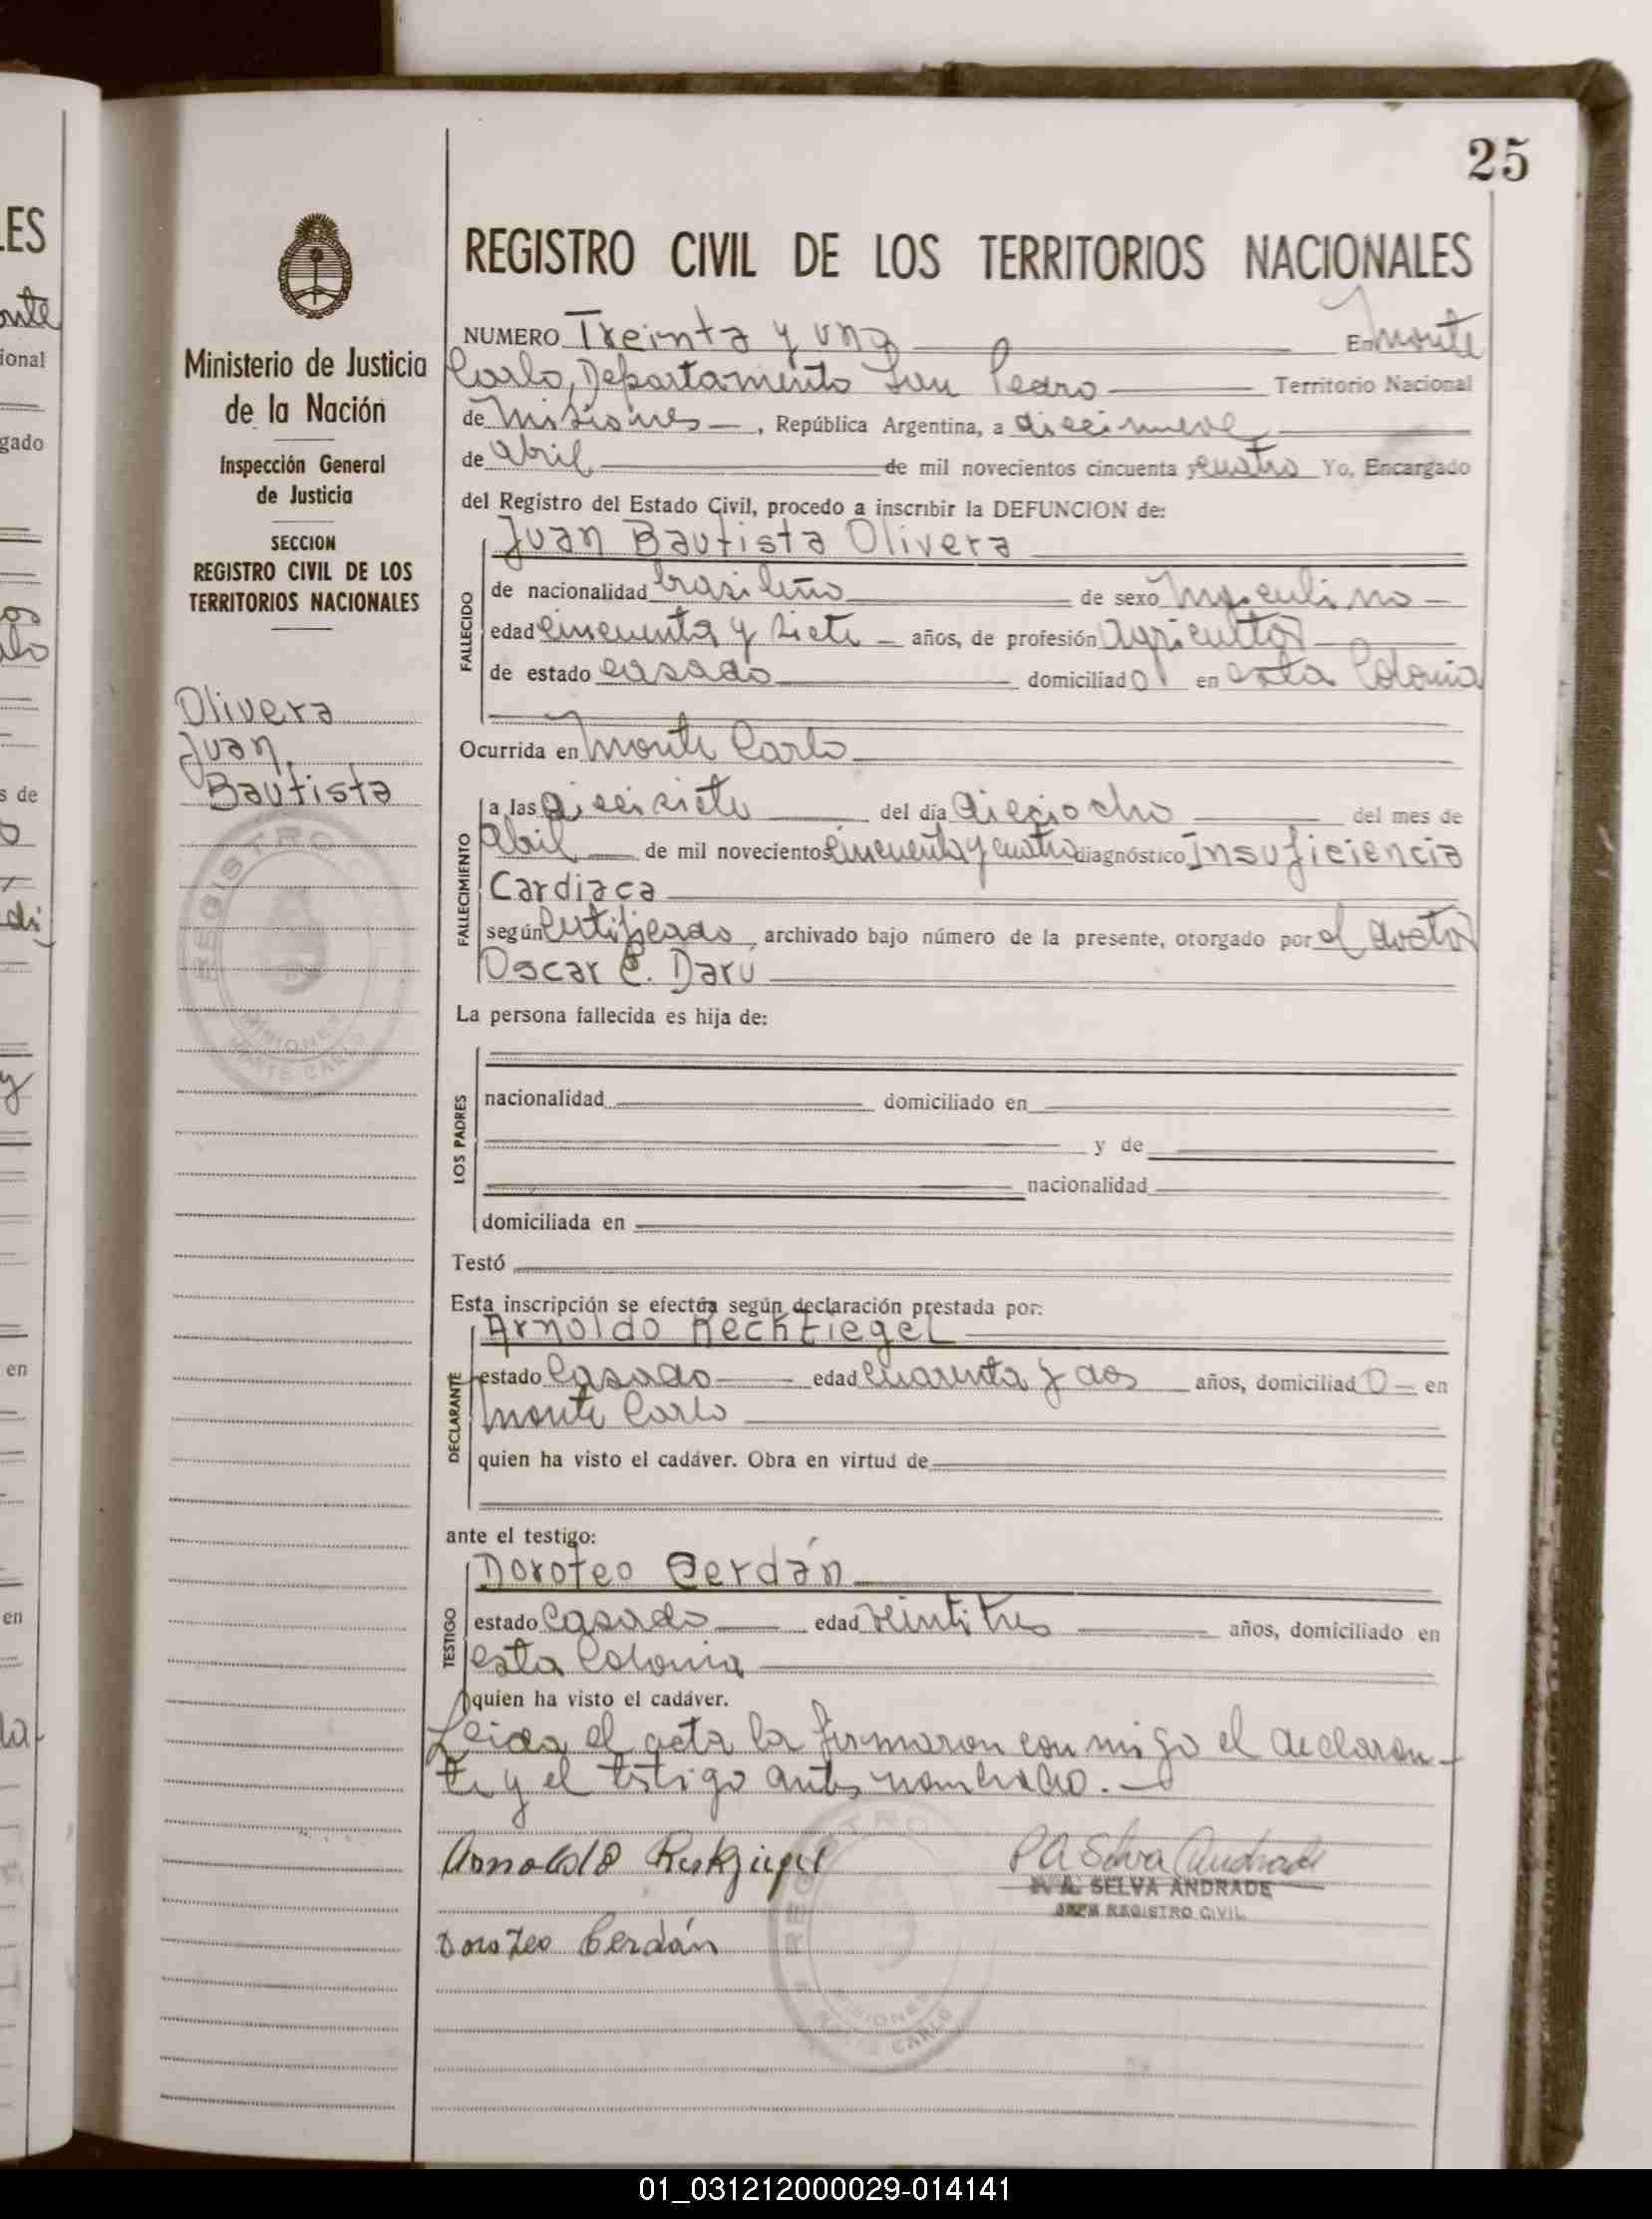 25
REGISTRO CIVIL DE LOS TERRITORIOS NACIONALES
Ministerio de Justicia
de la Nación
Inspección General
de Justicia
SECCION
REGISTRO CIVIL DE LOS
TERRITORIOS NACIONALES
Olivera
Juan
Bautista
NUMERO Treinta y uno En Monte
Carlo, Departamento San Pedro Territorio Nacional
de Misiones, República Argentina, a diecinueve
de abril de mil novecientos cincuenta y cuatro Yo, Encargado
del Registro del Estado Civil, procedo a inscribir la DEFUNCION de:
Juan Bautista Olivera
FALLECIDO
de nacionalidad brasileño de sexo masculino
edad cincuenta y siete años, de profesión Agricultor
de estado casado domiciliado en esta Colonia
Ocurrida en Monte Carlo
FALLECIMIENTO
a las diecisiete del día dieciocho del mes de
Abril de mil novecientos cincuenta y cuatro diagnóstico Insuficiencia
Cardiaca
según certificado, archivado bajo número de la presente, otorgado por el doctor
Oscar C. Darú
La persona fallecida es hija de:
LOS PADRES
nacionalidad domiciliado en
y de
nacionalidad
domiciliada en
Testó
Esta inscripción se efectúa según declaración prestada por:
DECLARANTE
Arnoldo
estado Casado edad cuarenta y dos años, domiciliado en
Monte Carlo
quien ha visto el cadáver. Obra en virtud de
ante el testigo:
TESTIGO
Doroteo Cerdán
estado Casado edad veintitres años, domiciliado en
esta Colonia
quien ha visto el cadáver.
Leida el acta la firmaron con migo el declaran-
te y el testigo antes nombrado.
Arnoldo
P A Selva Andrade
P. A. SELVA ANDRADE
JEFE REGISTRO CIVIL
Doroteo Cerdán
REGISTRO
MISIONES
MONTE CARLO
01_031212000029-014141